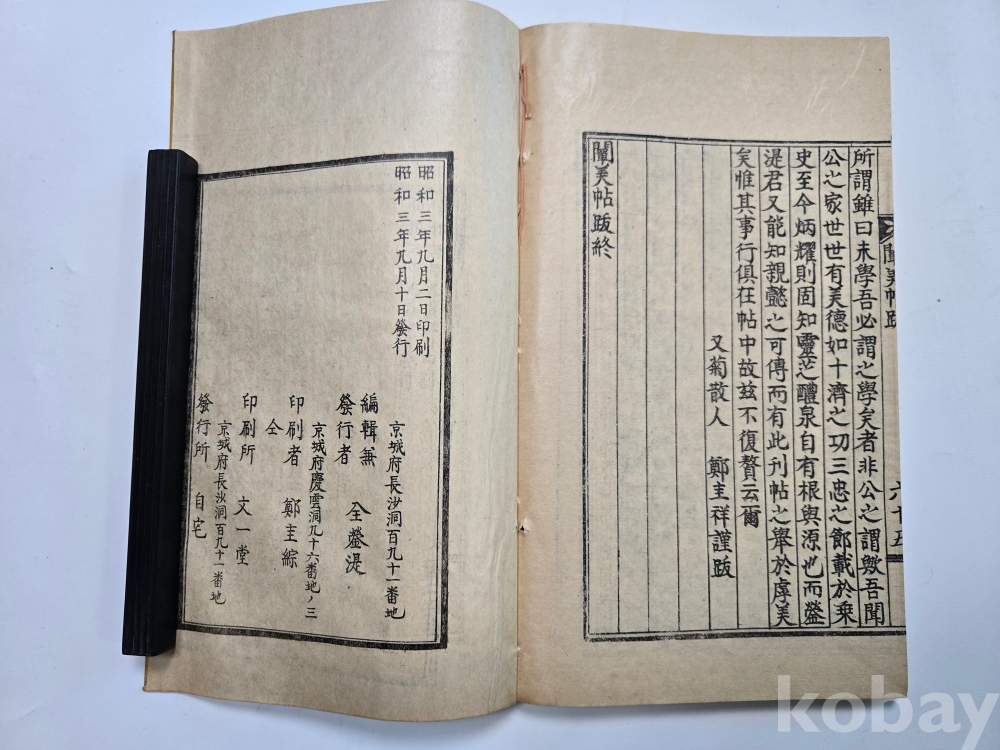 所謂雖曰未學吾必謂之學矣者非公之謂歟吾聞
公之家世世有美德如十濟之功三忠之節載於乘
史至今炳耀則固知靈芝醴泉自有根與源也而鎣
湜君又能知親懿之可傳而有此刊帖之舉於虖美
矣惟其事行俱在帖中故玆不復贅云爾
又菊散人 鄭圭祥謹跋
闡美帖跋終
闡美帖跋
六十五
昭和三年九月二日印刷
昭和三年九月十日發行
京城府長沙洞百九十一番地
編輯兼
發行者 全鎣湜
京城府慶雲洞九十六番地ノ三
印刷者 鄭圭綜
仝
印刷所 文一堂
京城府長沙洞百九十一番地
發行所 自宅
kobay